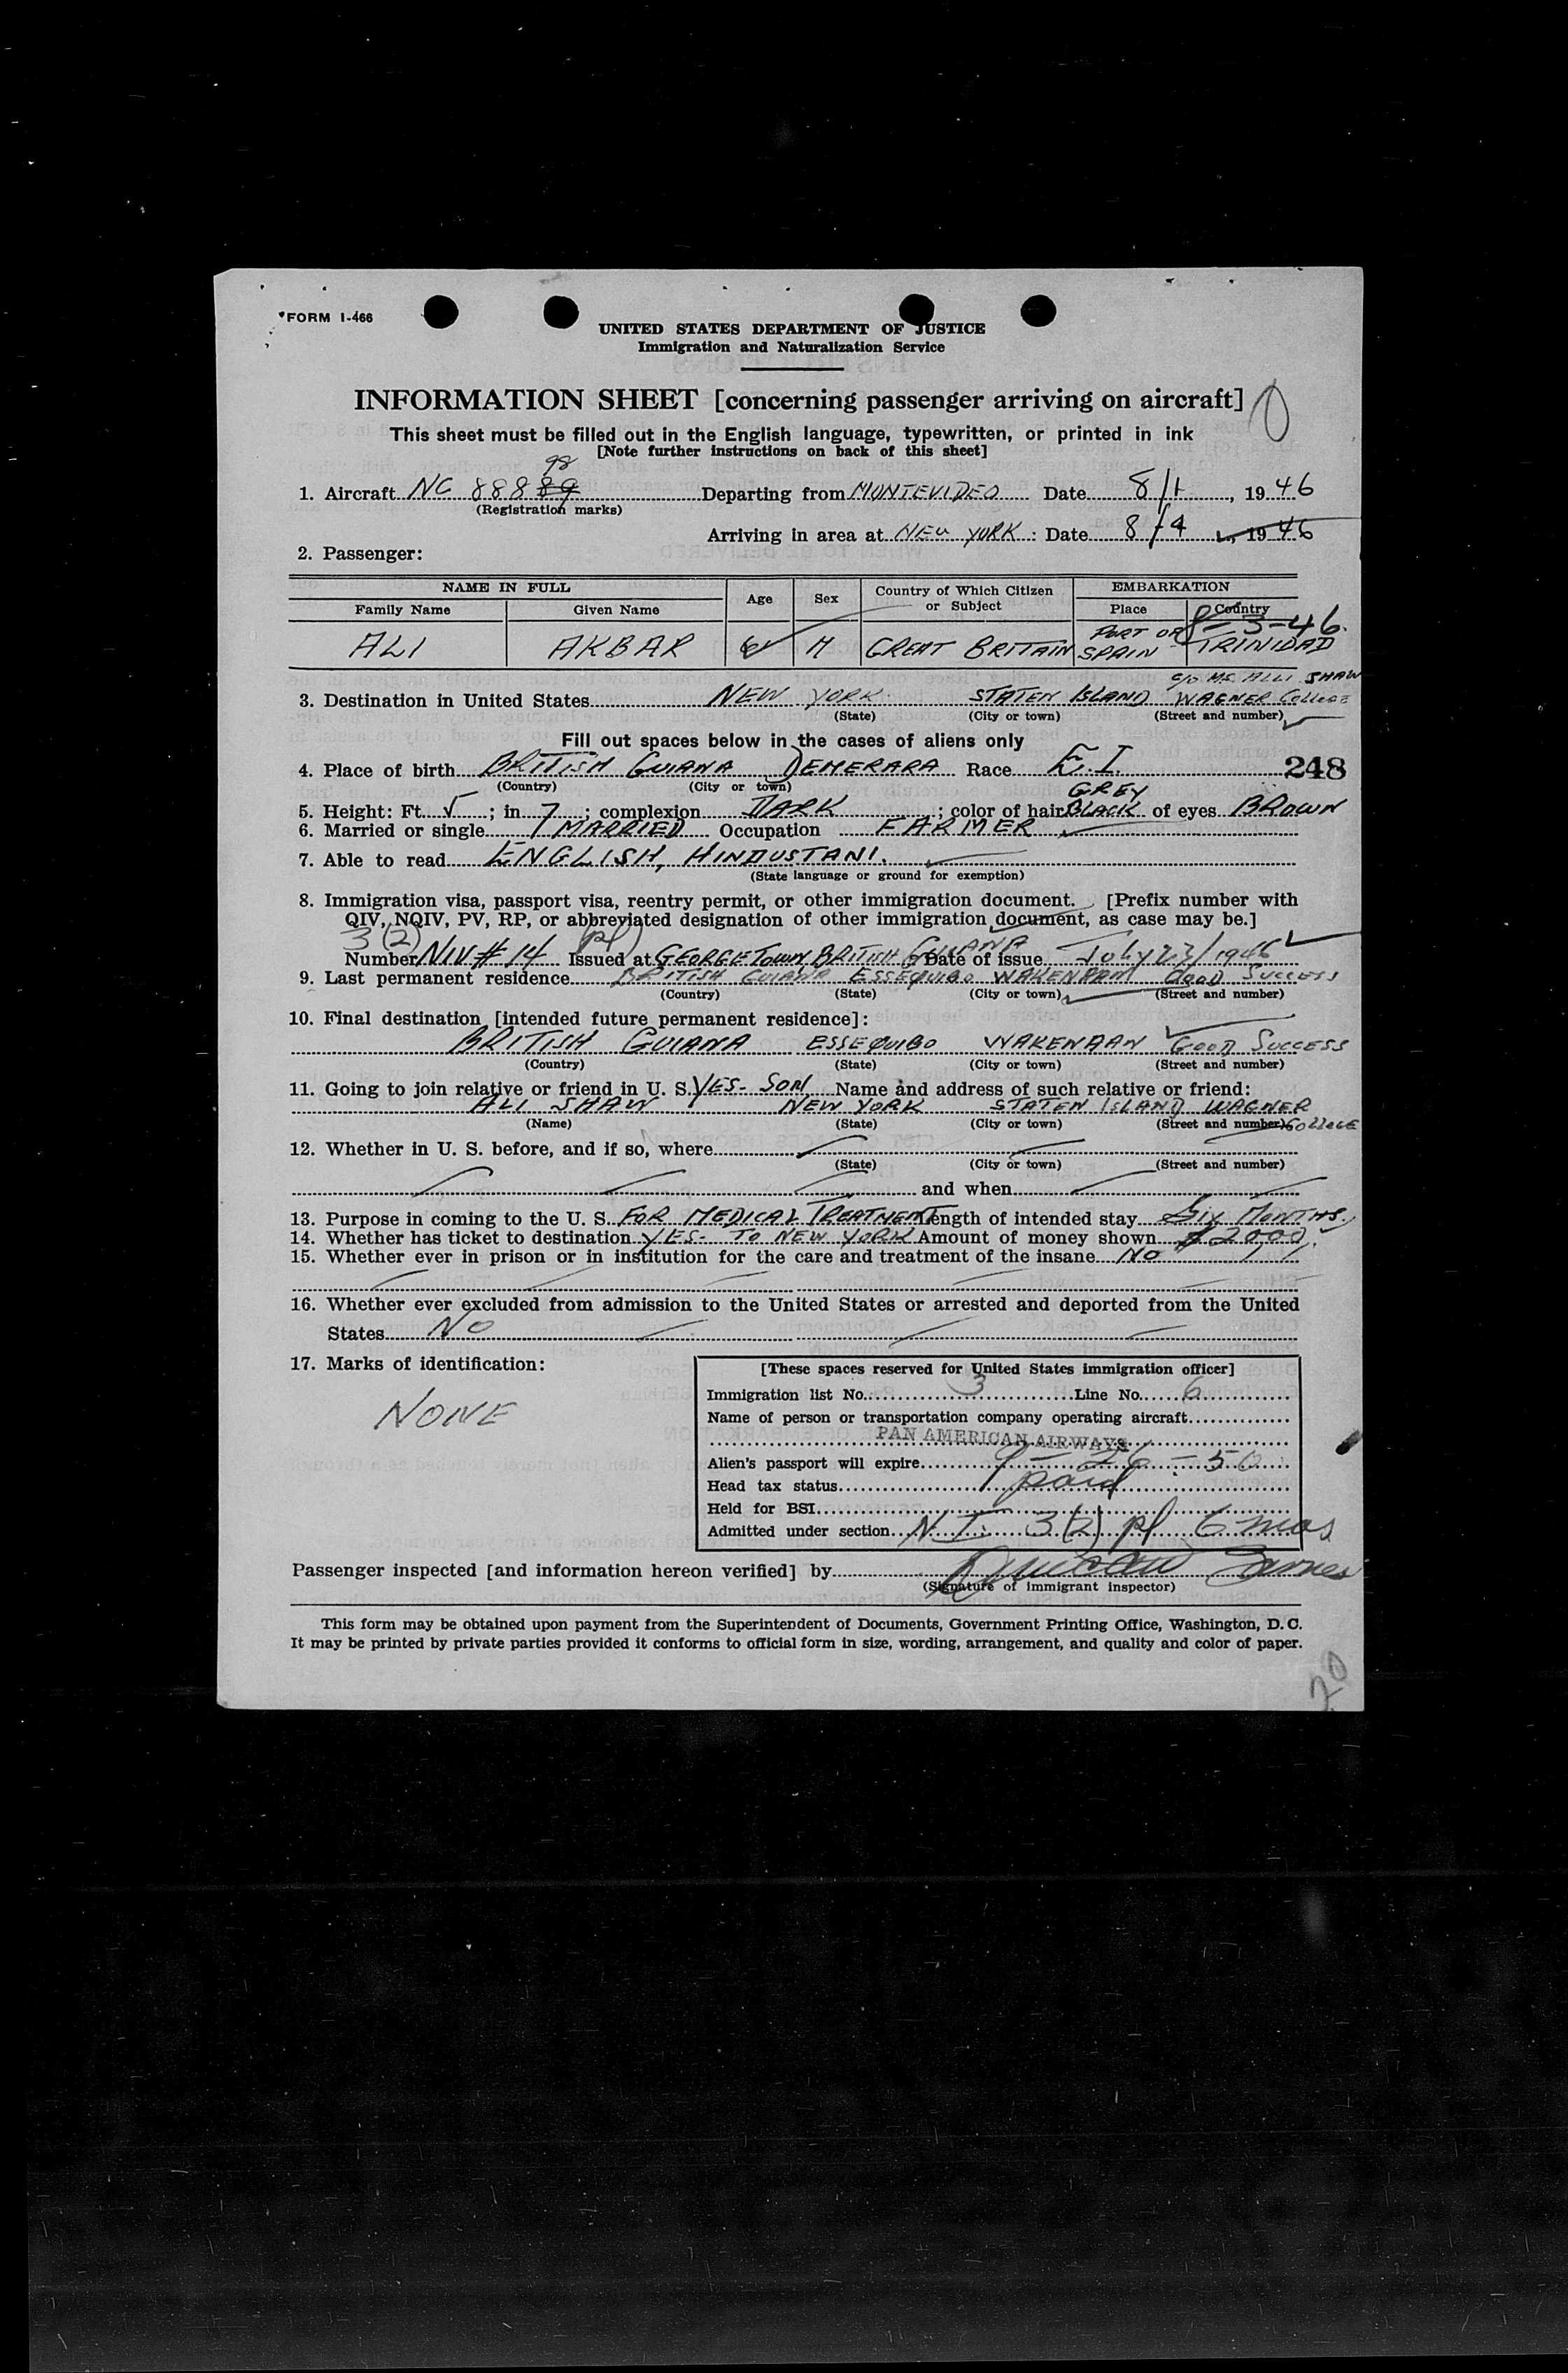 FORM I-466
UNITED STATES DEPARTMENT OF JUSTICE
Immigration and Naturalization Service
INFORMATION SHEET [concerning passenger arriving on aircraft]
This sheet must be filled out in the English language, typewritten, or printed in ink
[Note further instructions on back of this sheet]
98
1. Aircraft NC 88889 Departing from MONTEVIDEO Date 8/1, 1946
(Registration marks)
Arriving in area at NEW YORK : Date 8/4, 1946
2. Passenger:
NAME IN FULL Age Sex Country of Which Citizen or Subject EMBARKATION
Family Name Given Name Place Country
8-3-46.
ALI AKBAR M GREAT BRITAIN PORT OF SPAIN TRINIDAD
c/o MR ALLI SHAW
3. Destination in United States NEW YORK STATEN ISLAND WAGNER COLLEGE
(State) (City or town) (Street and number)
Fill out spaces below in the cases of aliens only
4. Place of birth BRITISH GUIANA DEMERARA Race E.I. 248
(Country) (City or town)
GREY
5. Height: Ft. 5 ; in 7 ; complexion DARK ; color of hair BLACK of eyes BROWN
6. Married or single MARRIED Occupation FARMER
7. Able to read ENGLISH, HINDUSTANI.
(State language or ground for exemption)
8. Immigration visa, passport visa, reentry permit, or other immigration document. [Prefix number with
QIV, NQIV, PV, RP, or abbreviated designation of other immigration document, as case may be.]
3(2) pl
Number NIV # 14 Issued at GEORGETOWN BRITISH GUIANA Date of issue July 23/1946
9. Last permanent residence BRITISH GUIANA ESSEQUIBO WAKENAAM GOOD SUCCESS
(Country) (State) (City or town) (Street and number)
10. Final destination [intended future permanent residence]:
BRITISH GUIANA ESSEQUIBO WAKENAAN GOOD SUCCESS
(Country) (State) (City or town) (Street and number)
11. Going to join relative or friend in U. S. YES- SON Name and address of such relative or friend:
ALI SHAW NEW YORK STATEN ISLAND WAGNER COLLEGE
(Name) (State) (City or town) (Street and number)
12. Whether in U. S. before, and if so, where
(State) (City or town) (Street and number)
and when
13. Purpose in coming to the U. S. FOR MEDICAL TREATMENT Length of intended stay SIX MONTHS.
14. Whether has ticket to destination YES- TO NEW YORK Amount of money shown $2000.
15. Whether ever in prison or in institution for the care and treatment of the insane NO
16. Whether ever excluded from admission to the United States or arrested and deported from the United
States NO
17. Marks of identification:
NONE
[These spaces reserved for United States immigration officer]
Immigration list No. 3 Line No. 6
Name of person or transportation company operating aircraft
PAN AMERICAN AIRWAYS
Alien's passport will expire 9-26-50
Head tax status paid
Held for BSI
Admitted under section N.I. 3(2) pl 6 mos
Passenger inspected [and information hereon verified] by
(Signature of immigrant inspector)
This form may be obtained upon payment from the Superintendent of Documents, Government Printing Office, Washington, D. C.
It may be printed by private parties provided it conforms to official form in size, wording, arrangement, and quality and color of paper.
20